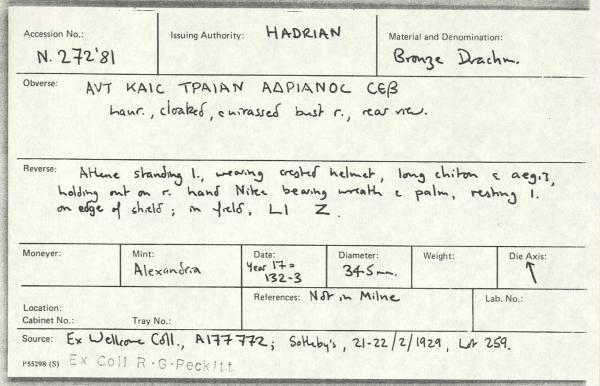 Accession No.: N. 272'81
Issuing Authority: HADRIAN
Material and Denomination: Bronze Drachm.
Obverse: ΑVΤ ΚΑΙC ΤΡΑΙΑΝ ΑΔΡΙΑΝΟC CΕβ
laur., cloaked, cuirassed bust r., rear view.
Reverse: Athene standing l., wearing crested helmet, long chiton c aegis,
holding out on r. hand Nike bearing wreath c palm, resting l.
on edge of shield; in field, LI Z.
Moneyer:
Mint: Alexandria
Date: Year 17 = 132-3
Diameter: 34.5 mm.
Weight:
Die Axis: ↖
Location:
Cabinet No.:
Tray No.:
References: Not in Milne
Lab. No.:
Source: Ex Wellcome Coll., A177772; Sotheby's, 21-22/2/1929, Lot 259.
P55298 (S) Ex Coll R.G.Peckitt